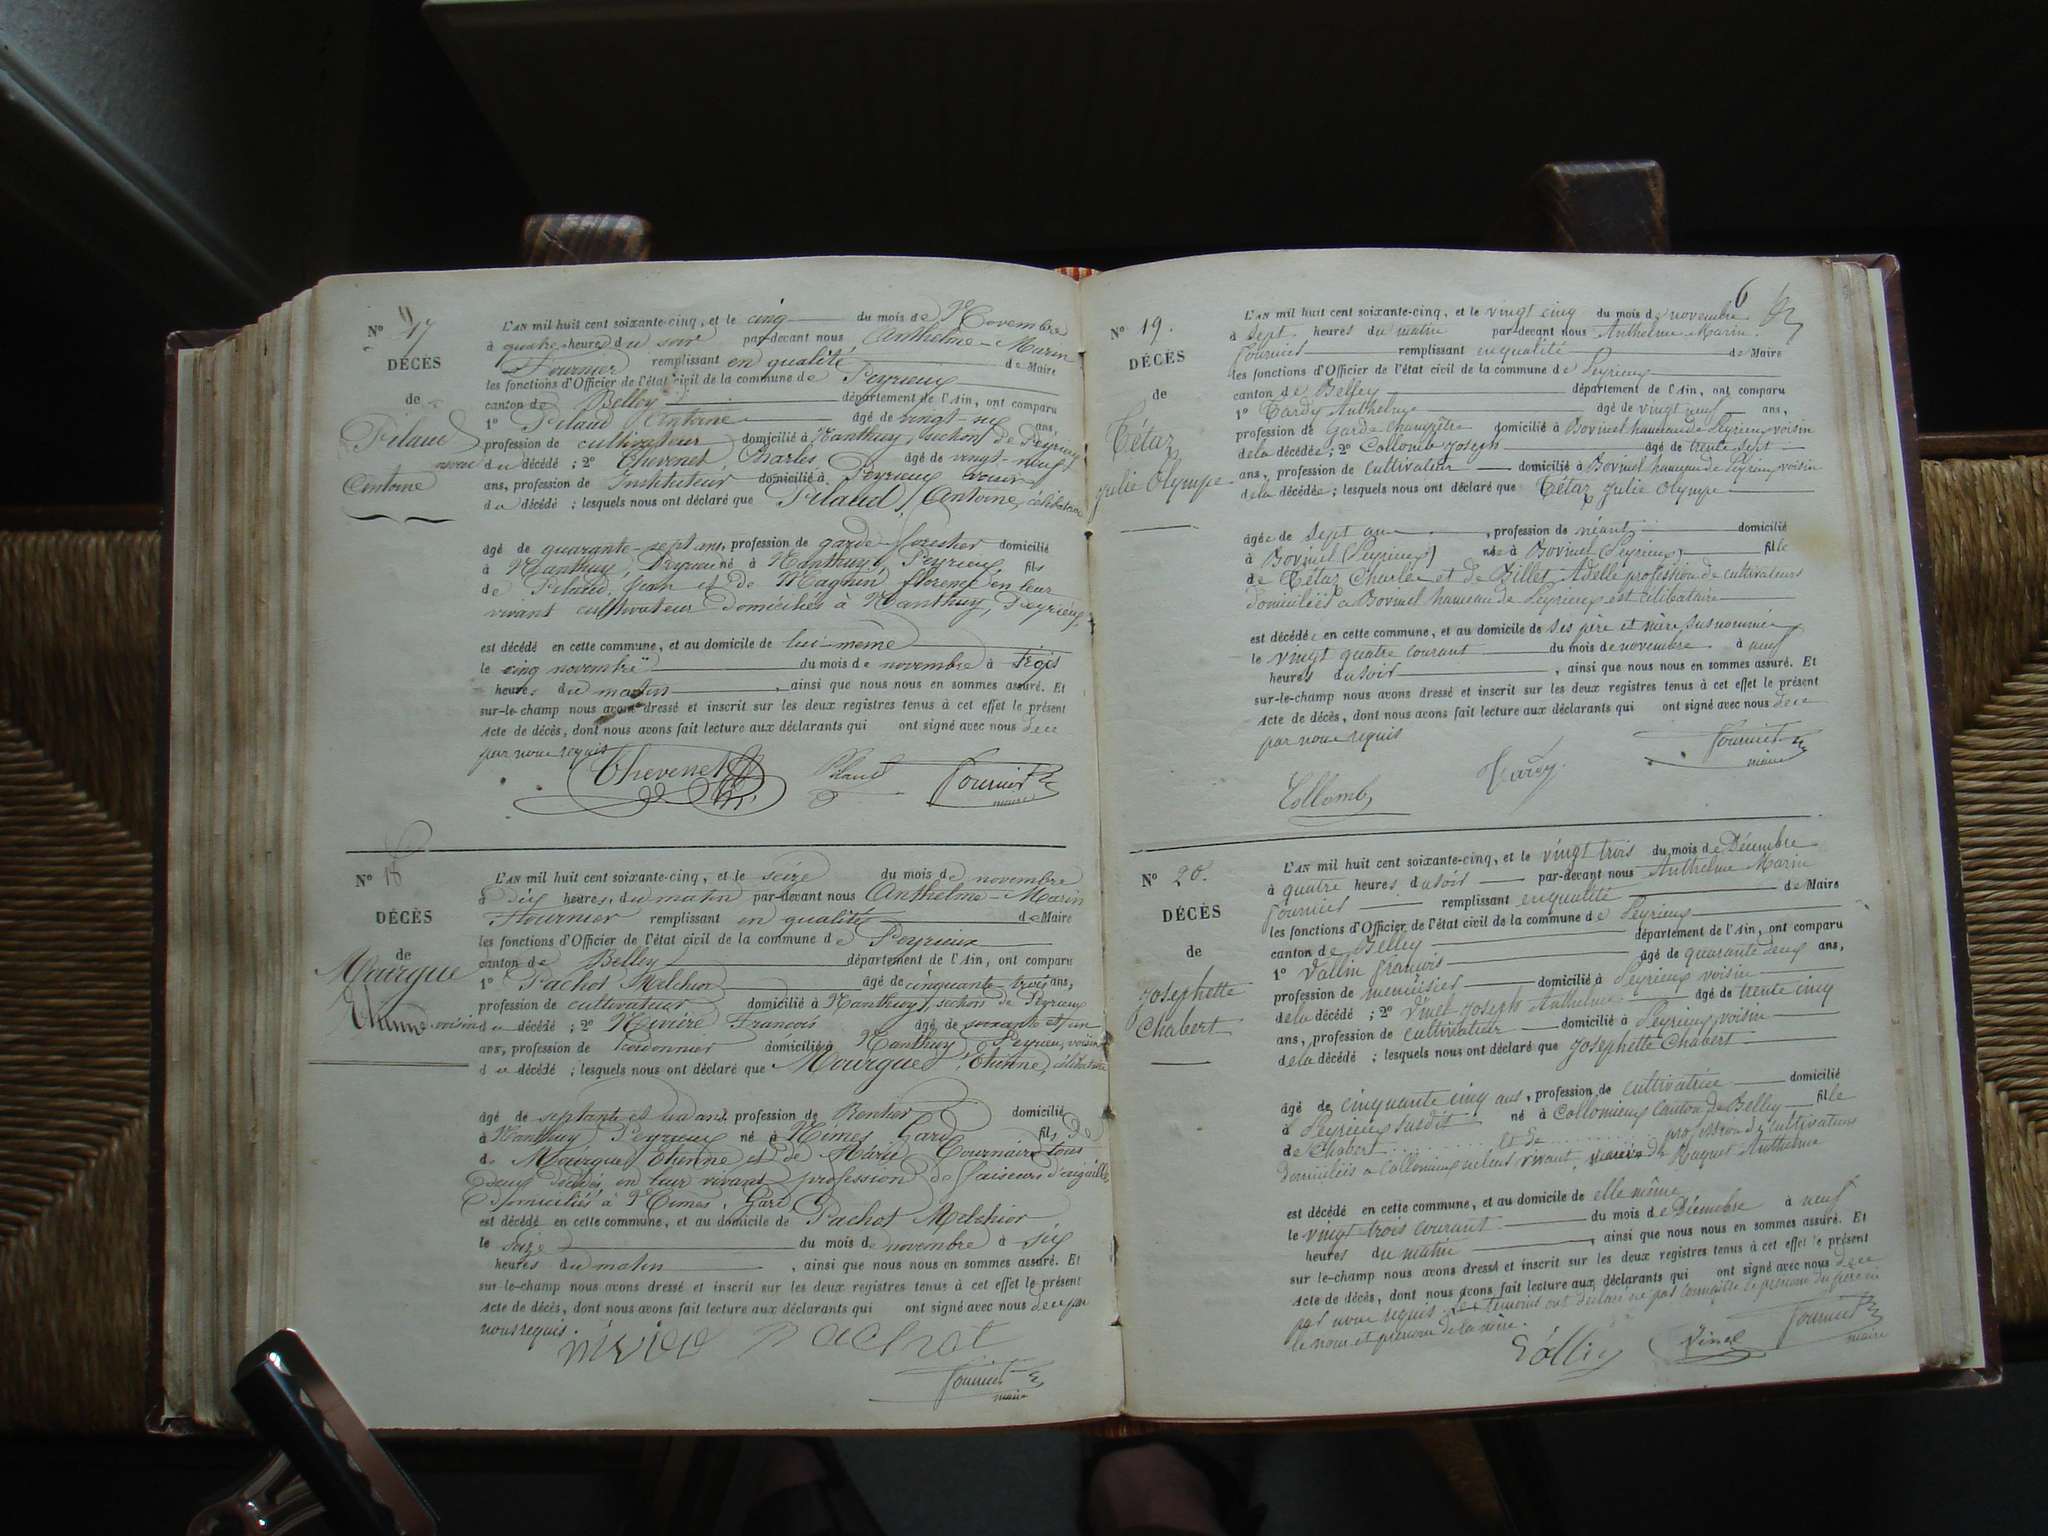 Nº 17
DÉCÈS
de
Pilaud
Antoine
L'AN mil huit cent soixante-cinq, et le cinq du mois de Novembre
à quatre heures du soir par-devant nous Anthelme-Marin
Fournier remplissant en qualité de Maire
les fonctions d'Officier de l'état civil de la commune de Peyrieux
canton de Belley département de l'Ain, ont comparu
1º Pilaud Antoine âgé de vingt-six ans,
profession de cultivateur domicilié à Nanthuy, section de Peyrieux
neveu du décédé ; 2º Chevenet Charles âgé de vingt-neuf
ans, profession de Instituteur domicilié à Peyrieux voisin
du décédé ; lesquels nous ont déclaré que Pilaud Antoine, célibataire
âgé de quarante-sept ans, profession de garde-forestier domicilié
à Nanthuy, Peyrieux né à Nanthuy, Peyrieux, fils
de Pilaud Jean et de Magnin florence en leur
vivant cultivateur domiciliés à Nanthuy, Peyrieux,
est décédé en cette commune, et au domicile de lui-même
le cinq novembre du mois de novembre à trois
heures du matin, ainsi que nous nous en sommes assuré. Et
sur-le-champ nous avons dressé et inscrit sur les deux registres tenus à cet effet le présent
Acte de décès, dont nous avons fait lecture aux déclarants qui ont signé avec nous de ce
par nous requis
Thevenet Pilaud Fournier
maire
Nº 18
DÉCÈS
de
Mourgue
Etienne
L'AN mil huit cent soixante-cinq, et le seize du mois de novembre
à dix heures du matin par-devant nous Anthelme-Marin
Fournier remplissant en qualité de Maire
les fonctions d'Officier de l'état civil de la commune de Peyrieux
canton de Belley département de l'Ain, ont comparu
1º Pachot Melchior âgé de cinquante-trois ans,
profession de cultivateur domicilié à Nanthuy, section de Peyrieux
voisin du décédé ; 2º Nivière François âgé de soixante et un
ans, profession de Cordonnier domicilié à Nanthuy Peyrieu, voisin
du décédé ; lesquels nous ont déclaré que Mourgue Etienne, célibataire
âgé de septante et un ans, profession de Rentier domicilié
à Nanthuy Peyrieux né à Nîmes Gard fils de
de Mourgue Etienne et de Marie Tournaire tous
deux décédés, en leur vivant profession de faiseurs d'aiguilles
domiciliés à Nîmes, Gard
est décédé en cette commune, et au domicile de Pachot Melchior
le seize du mois de novembre à six
heures du matin, ainsi que nous nous en sommes assuré. Et
sur-le-champ nous avons dressé et inscrit sur les deux registres tenus à cet effet le présent
Acte de décès, dont nous avons fait lecture aux déclarants qui ont signé avec nous de ce par
nous requis.
Pachot
Fournier
maire
6
Nº 19.
DÉCÈS
de
Tétaz
Julie Olympe
L'AN mil huit cent soixante-cinq, et le vingt cinq du mois de novembre
à sept heures du matin par-devant nous Anthelme Marin
Fournier remplissant en qualité de Maire
les fonctions d'Officier de l'état civil de la commune de Peyrieux
canton de Belley département de l'Ain, ont comparu
1º Tardy Anthelme âgé de vingt neuf ans,
profession de Garde champêtre domicilié à Bovinel hameau de Peyrieux voisin
de la décédée ; 2º Collomb Joseph âgé de trente sept
ans, profession de cultivateur domicilié à Bovinel hameau de Peyrieux voisin
de la décédée ; lesquels nous ont déclaré que Tétaz Julie Olympe
âgée de sept ans, profession de néant domicilié
à Bovinel (Peyrieux) née à Bovinel (Peyrieux) fille
de Tétaz Charles et de Billet Adelle profession de cultivateurs
domiciliés à Bovinel hameau de Peyrieux est célibataire
est décédée en cette commune, et au domicile de ses père et mère susnommés
le vingt quatre courant du mois de novembre à neuf
heures du soir, ainsi que nous nous en sommes assuré. Et
sur-le-champ nous avons dressé et inscrit sur les deux registres tenus à cet effet le présent
Acte de décès, dont nous avons fait lecture aux déclarants qui ont signé avec nous de ce
par nous requis
Collomb Tardy Fournier
maire
Nº 20.
DÉCÈS
de
Josephette
Chabert
L'AN mil huit cent soixante-cinq, et le vingt trois du mois de Décembre
à quatre heures du soir par-devant nous Anthelme Marin
Fournier remplissant en qualité de Maire
les fonctions d'Officier de l'état civil de la commune de Peyrieux
canton de Belley département de l'Ain, ont comparu
1º Vallin François âgé de quarante deux ans,
profession de menuisier domicilié à Peyrieux voisin
de la décédé ; 2º Vinel Joseph Anthelme âgé de trente cinq
ans, profession de cultivateur domicilié à Peyrieux voisin
de la décédé ; lesquels nous ont déclaré que Josephette Chabert
âgé de cinquante cinq ans, profession de cultivatrice domicilié
à Peyrieux susdit né à Collomieux Canton de Belley fille
de Chabert et de profession de cultivateurs
domiciliés à Collomieux en leur vivant, mariée de Raquet Anthelme
est décédé en cette commune, et au domicile de elle même
le vingt trois courant du mois de Décembre à neuf
heures du matin, ainsi que nous nous en sommes assuré. Et
sur le-champ nous avons dressé et inscrit sur les deux registres tenus à cet effet le présent
Acte de décès, dont nous avons fait lecture aux déclarants qui ont signé avec nous de ce
par nous requis. Les témoins ont déclaré ne pas connaître le prénom du père ni
le nom et prénom de la mère.
Vinel Fournier
maire